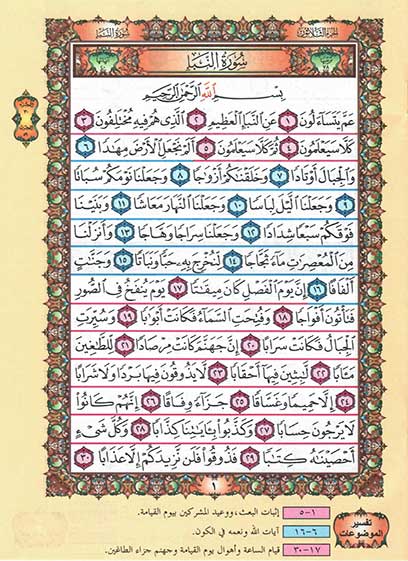 الجزء الثلاثون
سورة النبأ
سُورَةُ النَّبَإِ
بِسْمِ اللَّهِ الرَّحْمَٰنِ الرَّحِيمِ
عَمَّ يَتَسَآءَلُونَ ١ عَنِ ٱلنَّبَإِ ٱلْعَظِيمِ ٢ ٱلَّذِى هُمْ فِيهِ مُخْتَلِفُونَ ٣
كَلَّا سَيَعْلَمُونَ ٤ ثُمَّ كَلَّا سَيَعْلَمُونَ ٥ أَلَمْ نَجْعَلِ ٱلْأَرْضَ مِهَٰدًا ٦
وَٱلْجِبَالَ أَوْتَادًا ٧ وَخَلَقْنَٰكُمْ أَزْوَٰجًا ٨ وَجَعَلْنَا نَوْمَكُمْ سُبَاتًا
٩ وَجَعَلْنَا ٱلَّيْلَ لِبَاسًا ١٠ وَجَعَلْنَا ٱلنَّهَارَ مَعَاشًا ١١ وَبَنَيْنَا
فَوْقَكُمْ سَبْعًا شِدَادًا ١٢ وَجَعَلْنَا سِرَاجًا وَهَّاجًا ١٣ وَأَنزَلْنَا
مِنَ ٱلْمُعْصِرَٰتِ مَآءً ثَجَّاجًا ١٤ لِّنُخْرِجَ بِهِۦ حَبًّا وَنَبَاتًا ١٥ وَجَنَّٰتٍ
أَلْفَافًا ١٦ إِنَّ يَوْمَ ٱلْفَصْلِ كَانَ مِيقَٰتًا ١٧ يَوْمَ يُنفَخُ فِى ٱلصُّورِ
فَتَأْتُونَ أَفْوَاجًا ١٨ وَفُتِحَتِ ٱلسَّمَآءُ فَكَانَتْ أَبْوَٰبًا ١٩ وَسُيِّرَتِ
ٱلْجِبَالُ فَكَانَتْ سَرَابًا ٢٠ إِنَّ جَهَنَّمَ كَانَتْ مِرْصَادًا ٢١ لِّلطَّٰغِينَ
مَـَٔابًا ٢٢ لَّٰبِثِينَ فِيهَآ أَحْقَابًا ٢٣ لَّا يَذُوقُونَ فِيهَا بَرْدًا وَلَا شَرَابًا
٢٤ إِلَّا حَمِيمًا وَغَسَّاقًا ٢٥ جَزَآءً وِفَاقًا ٢٦ إِنَّهُمْ كَانُوا۟
لَا يَرْجُونَ حِسَابًا ٢٧ وَكَذَّبُوا۟ بِـَٔايَٰتِنَا كِذَّابًا ٢٨ وَكُلَّ شَىْءٍ
أَحْصَيْنَٰهُ كِتَٰبًا ٢٩ فَذُوقُوا۟ فَلَن نَّزِيدَكُمْ إِلَّا عَذَابًا ٣٠
١
تفسير الموضوعات
١-٥ إثبات البعث، ووعيد المشركين بيوم القيامة.
٦-١٦ آيات الله ونعمه في الكون.
١٧-٣٠ قيام الساعة وأهوال يوم القيامة وجهنم جزاء الطاغين.